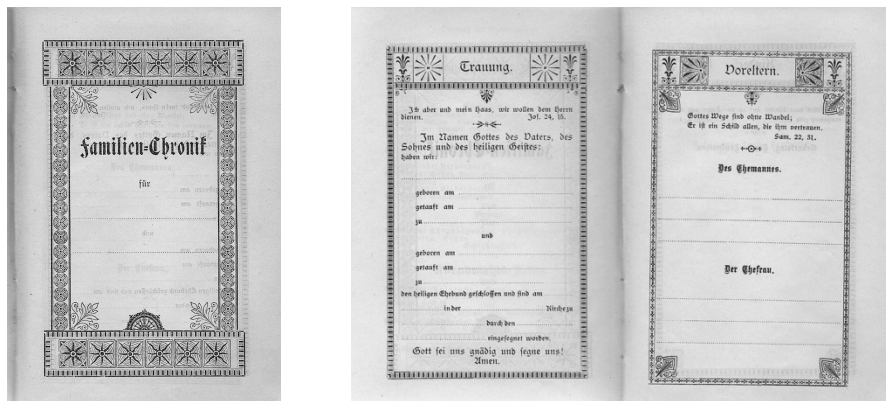 Familien-Chronik
für
und
Trauung.
Ich aber und mein Haus, wir wollen dem Herrn
dienen. Jos. 24, 15.
Im Namen Gottes des Vaters, des
Sohnes und des heiligen Geistes:
haben wir:
geboren am
getauft am
zu
und
geboren am
getauft am
zu
den heiligen Ehebund geschlossen und sind am
in der Kirche zu
durch den
eingesegnet worden.
Gott sei uns gnädig und segne uns!
Amen.
Voreltern.
Gottes Wege sind ohne Wandel;
Er ist ein Schild allen, die ihm vertrauen.
Sam. 22, 31.
Des Ehemannes.
Der Ehefrau.